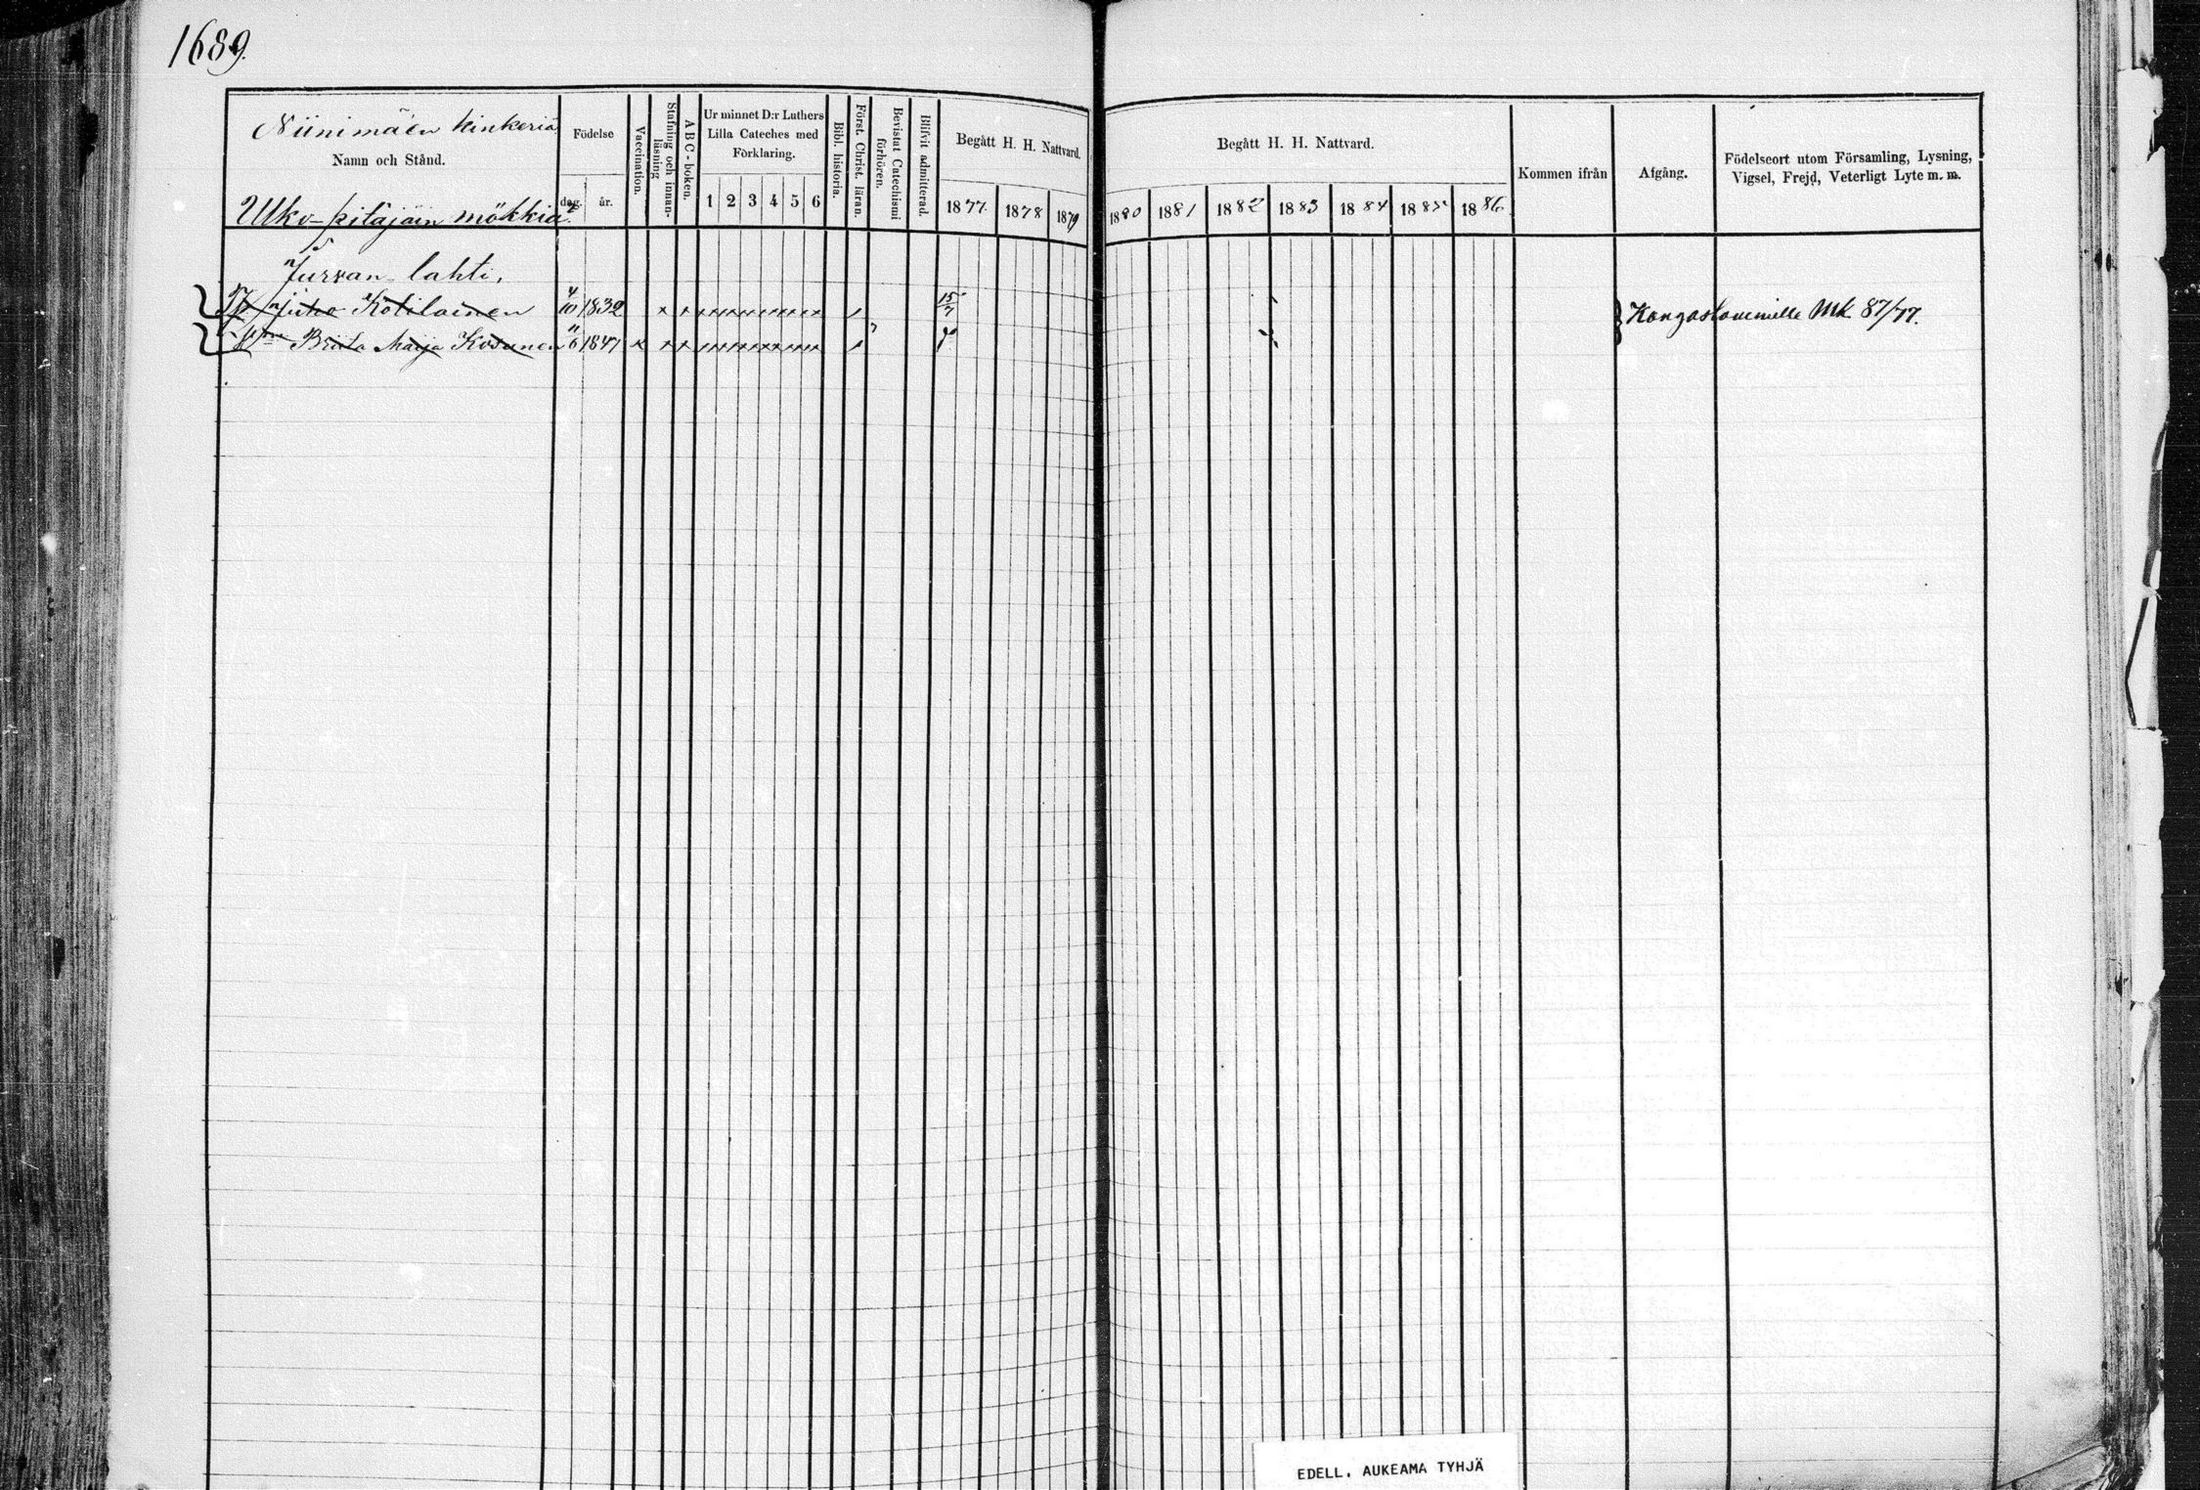 1689.
Niinimäen kinkeriä
Namn och Stånd.
Ulko-pitäjäin mökkiä.
Födelse
dag. år.
Vaccination.
Stafning och innan-läsning
ABC-boken.
Ur minnet D:r Luthers
Lilla Cateches med
Förklaring.
1 2 3 4 5 6
Bibl. historia.
Först. Christ. läran.
Bevistat Catechismi förhören.
Blifvit admitterad.
Begått H. H. Nattvard.
1877 1878 1879
Begått H. H. Nattvard.
1880 1881 1882 1883 1884 1885 1886
Kommen ifrån
Afgång.
Födelseort utom Församling, Lysning,
Vigsel, Frejd, Veterligt Lyte m. m.
lahti.
Juho Kotilainen 4/10 1832 15/7
Briita Maija Kosunen 11/6 1847
Kangaslammille Mk 87/77.
EDELL. AUKEAMA TYHJÄ